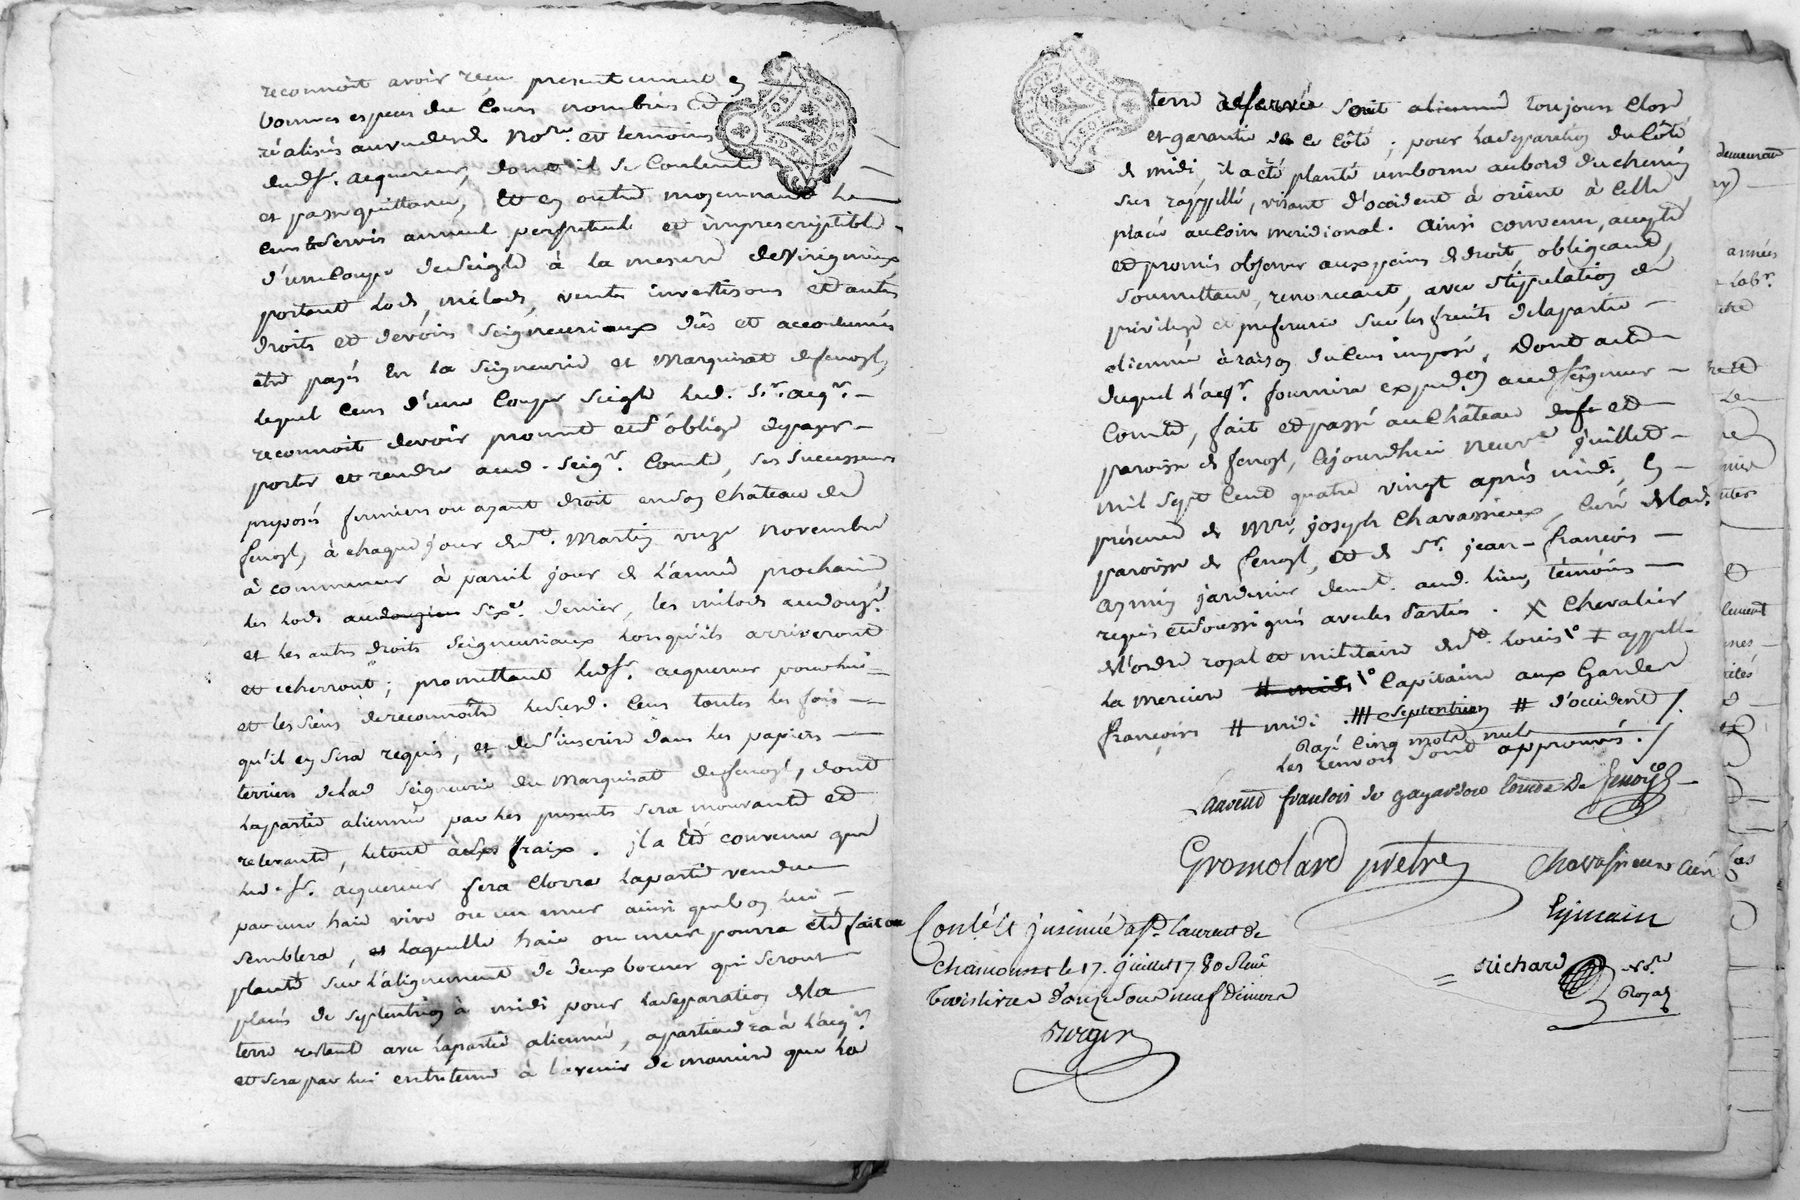 reconnoit avoir reçu presentement en
bonnes especes du Cours nombrées et
réalisés au vu desd. Nore. et temoins
dudsr. acquereur, dont il se Contente
et passe quittance, et en outre moyennant le
Cens & servis annuel perpetuel et imprescriptible
d'une Coupe de seigle à la mesure de Virignieux
portant lods, milods, ventes investisons et autres
droits et devoirs seigneuriaux dûs et accoutumés
être payés en la seigneurie et Marquisat de fenoyl,
lequel Cens d'une Coupe seigle led. sr. acqr.
reconnoit devoir promet et s'oblige de payer
porter et rendre aud. seigr. Comte, ses successeurs
preposés fermiers ou ayant droit en son Château de
fenoyl, à chaque jour de st. Martin onze novembre
à commencer à pareil jour de l'année prochaine
les lods audouzieme sixe. denier, les milods audouze.
et les autres droits seigneuriaux lorsqu'ils arriveront
et echerront; promettant ledsr. acquereur pour lui
et les siens de reconnoitre lesusd. Cens toutes les fois
qu'il en sera requis, et de s'inscrire dans les papiers
terriers de lad. seigneurie du Marquisat de fenoyl, dont
la partie alienée par les presentes sera mouvante et
relevante, le tout à ses fraix. il a été convenu que
led. sr. acquereur fera Clorre la partie vendue
par une haie vive ou un mur ainsi que bon lui
semblera, et laquelle haie ou mur pourra être fait ou
planté sur l'alignement de deux bornes qui seront
placés de septentrion à midi pour la separation de la
terre restante avec la partie alienée, apartiendra à l'acqr.
et sera par lui entretenue à l'avenir de maniere que la
terre reservée soit alienée toujours Close
et garantie de ce Côté; pour la separation du Côté
de midi, il a été planté une borne au bord du chemin
sus rappellé, visant d'occident à orient à celle
placée au Coin meridional. Ainsi convenu, accepté
et promis observer aux peines de droit, obligeant,
soumettant, renonceant, avec stipulation de
privilege et preference sur les fruits de la partie
alienée à raison du Cens imposé. Dont acte
duquel l'acqr. fournira expedon. aud seigneur
Comte, fait et passé au Château de fe et
paroisse de fenoyl, cejourdhui neuve. juillet
mil sept Cent quatre vingt après midi, En
présence de Mre. joseph Chavassieux, Curé de lad.
paroisse de fenoyl, et de sr. jean-françois
aymin jardinier demt. aud. lieu, témoins
requis et soussignés avec les Parties. X Chevalier
de l'ordre royal et militaire de st. Louis \° + appellé
la merciere # midi \° Capitaine aux Gardes
françoises # midi . ### septentrion # d'occident /.
Rayé Cinq mots nuls
les renvois sont approuvés. /
Laurent françois de gayardon Comte de fenoyl
Gromolard prêtre
Chavassieux Curé
Eymain
Richard Nre.
Royal
Conlé. & jnsinué a St. Laurent de
Chamousset le 17. juillet 1780 Reçu
trois livres d'onze sous neuf deniers
Berger